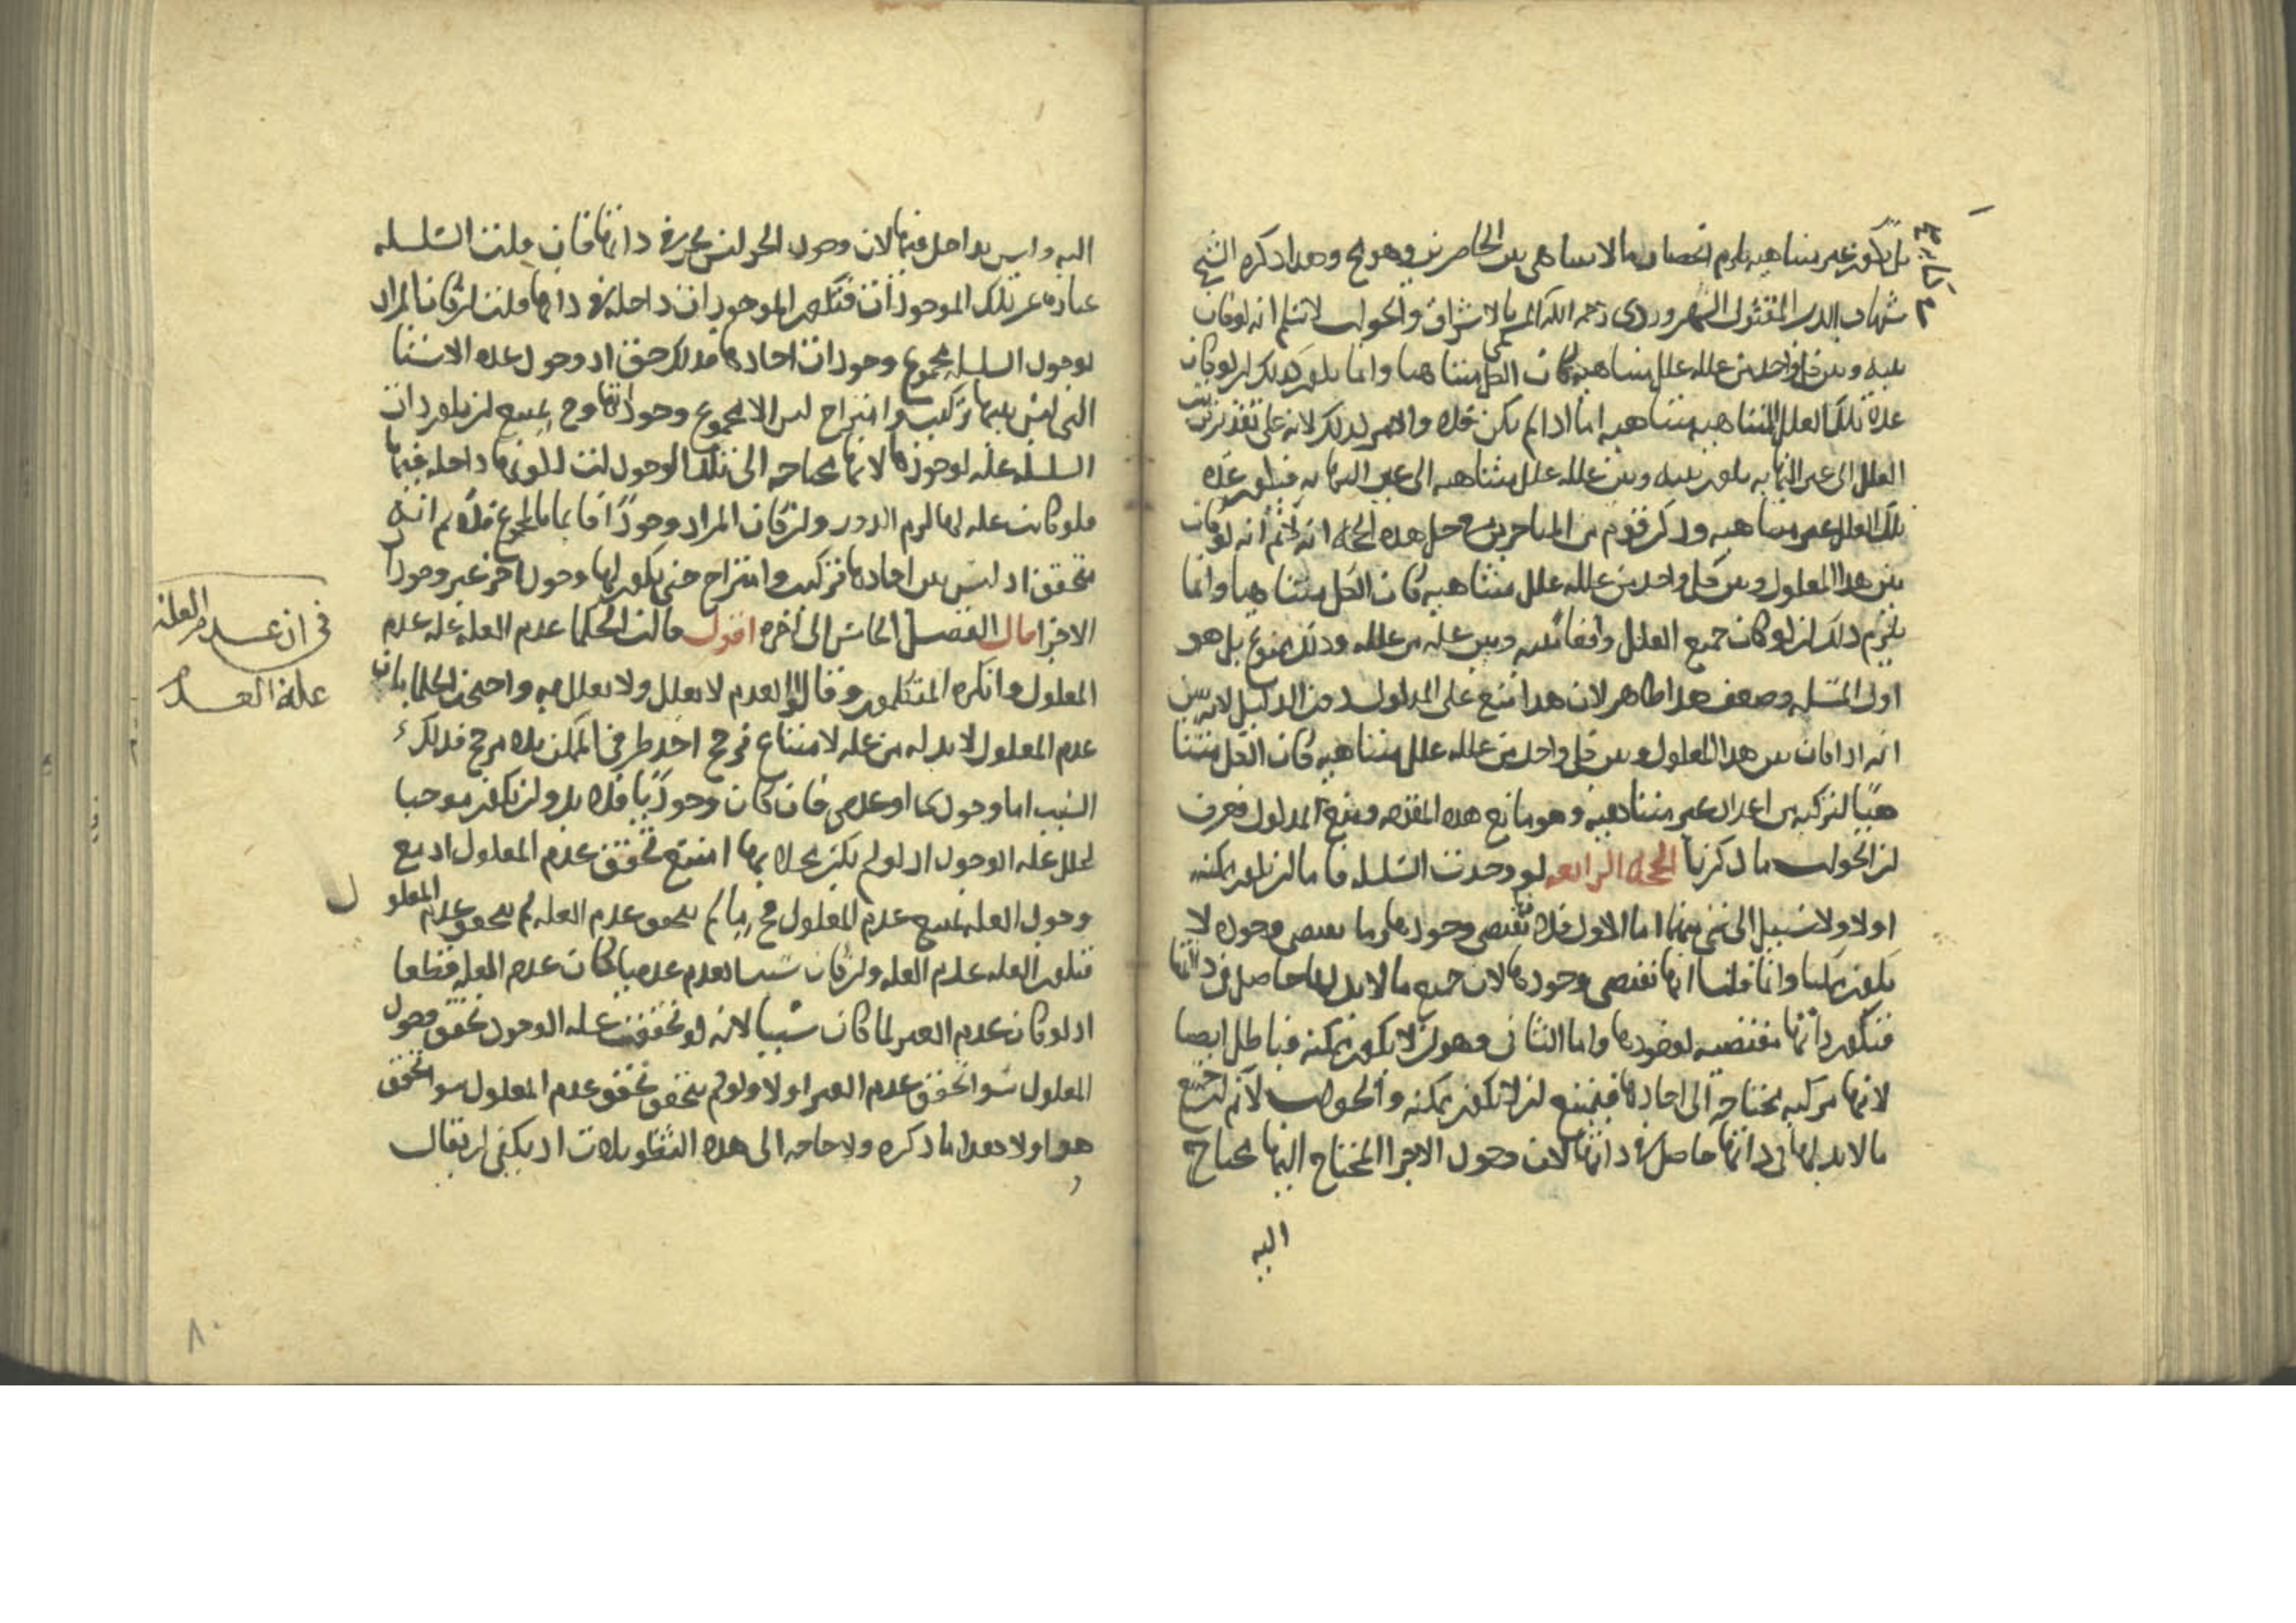 بل يكون غير متناهيه يلزم انحصار ما لا يتناهى بين الحاصرين وهو مح وهذا ذكره الشيخ
شهاب الدين المقتول السهروردى رحمه الله المسمى بالاشراق والجواب لا نسلم انه لو كان
بينه وبين كل واحد من علله علل متناهيه كان الكل متناهيا وانما يلزم ذلك ان لو كان
عدة تلك العلل المتناهيه متناهيه اما اذا لم يكن فلا والامر كذلك لانه على تقدير ترتب
العلل الى غير النهايه يكون بينه وبين علله علل متناهيه الى غير النهايه فيكون عدة
تلك العلل غير متناهيه وذكر قوم من المتاخرين فى حل هذه الحجه انه لا نم انه لو كان
بين هذا المعلول وبين كل واحد من علله علل متناهيه كان الكل متناهيا وانما
يلزم ذلك ان لو كان جميع العلل واقعا بينه وبين علة من علله وذلك ممنوع بل هو
اول المسئله وضعف هذا ظاهر لان هذا منع على المدلول دون الدليل لانه بين
انه اذا كان بين هذا المعلول وبين كل واحد من علله علل متناهيه كان الكل متنا
هيا لتركبه من اعداد غير متناهيه وهو مانع هذه المقدمه ومنع المدلول فعرف
ان الجواب ما ذكرنا الحجه الرابعه لو وجدت السلسله فاما ان يكون ممكنه
اولا ولا سبيل الى شى منهما اما الاول فلانها تقتضى وجودها وما يقتضى وجوده لا
يكون ممكنا وانما قلنا انها تقتضى وجودها لان جميع ما لا بد لها حاصل فى ذاتها
فتكون ذاتها مقتضيه لوجودها واما الثانى وهو ان لا يكون ممكنه فباطل ايضا
لانها مركبه محتاجه الى احادها فيمتنع ان لا تكون ممكنه والجواب لا نم ان جميع
ما لا بد لها فى ذاتها حاصل فى ذاتها لان وجود الاجزا المحتاج اليها محتاج
اليه
اليه وليس بداخل فيها لان وجود الجز ليس بجز فى ذاتها فان قلت السلسله
عباره عن تلك الموجودات فتكون الموجودات داخله فى ذاتها قلت ان كان المراد
بوجود السلسله مجموع وجودات احادها فذلك حق اذ وجود هذه الاشيا
التى ليس بينها تركيب وامتزاج ليس الا مجموع وجوداتها وح يمتنع ان يكون ذات
السلسله علة لوجودها لانها محتاجه الى تلك الوجودات لكونها داخله فيها
فلو كانت علة لها لزم الدور وان كان المراد وجودا قايما بالمجموع فلا نم انه
متحقق اذ ليس بين احادها تركيب وامتزاج حتى يكون لها وجود اخر غير وجود
الاجزا قال الفصل الخامس الى اخره اقول قالت الحكما عدم العله علة عدم
المعلول وانكره المتكلمون وقالوا العدم لا يعلل ولا يعلل به واحتجت الحكما بان
عدم المعلول لا بد له من علة لامتناع ترجح احد طرفى الممكن بلا مرجح فذلك
السبب اما وجودى او عدمى فان كان وجوديا فلا بد وان يكون موجبا
لخلل علة الوجود اذ لو لم يكن مخلا بها امتنع تحقق عدم المعلول اذ مع
وجود العله يمتنع عدم المعلول فح ما لم يتحقق عدم العله لم يتحقق عدم المعلو
ل
فتكون العله عدم العله وان كان سببا لعدم عدميا لكان عدم العله قطعا
اذ لو كان عدم الغير لما كان سببا لانه لو تحققت علة الوجود تحقق وجود
المعلول سوا تحقق عدم الغير اولا ولو لم يتحقق تحقق عدم المعلول سوا تحقق
هو اولا هذا ما ذكره ولا حاجه الى هذه التطويلات اذ يكفى ان يقال
فى ان عدم العله
علة العدم
٨٠